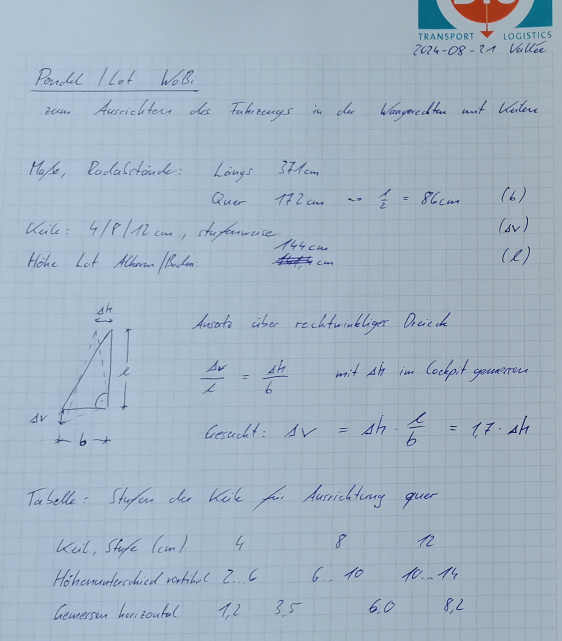 TRANSPORT LOGISTICS
2024-08-21
Pendel / Lot WoBi
zum Ausrichten des Fahrzeugs in der Waagerechten mit Keilen
Maße, Radabstände: Längs 371cm
Quer 172cm ~ l/2 = 86cm (b)
Keile: 4/8/12cm, stufenweise (Δv)
144cm
Höhe Lot /Boden: cm (l)
Δh
Ansatz über rechtwinkliges Dreieck
l
Δv/l = Δh/b mit Δh im Cockpit gemessen
Δv
b
Gesucht: Δv = Δh · l/b = 1,7 · Δh
Tabelle: Stufen der Keile für Ausrichtung quer
Keil, Stufe (cm) 4 8 12
Höhenunterschied vertikal 2...6 6...10 10...14
Gemessen horizontal 1,2 3,5 6,0 8,2